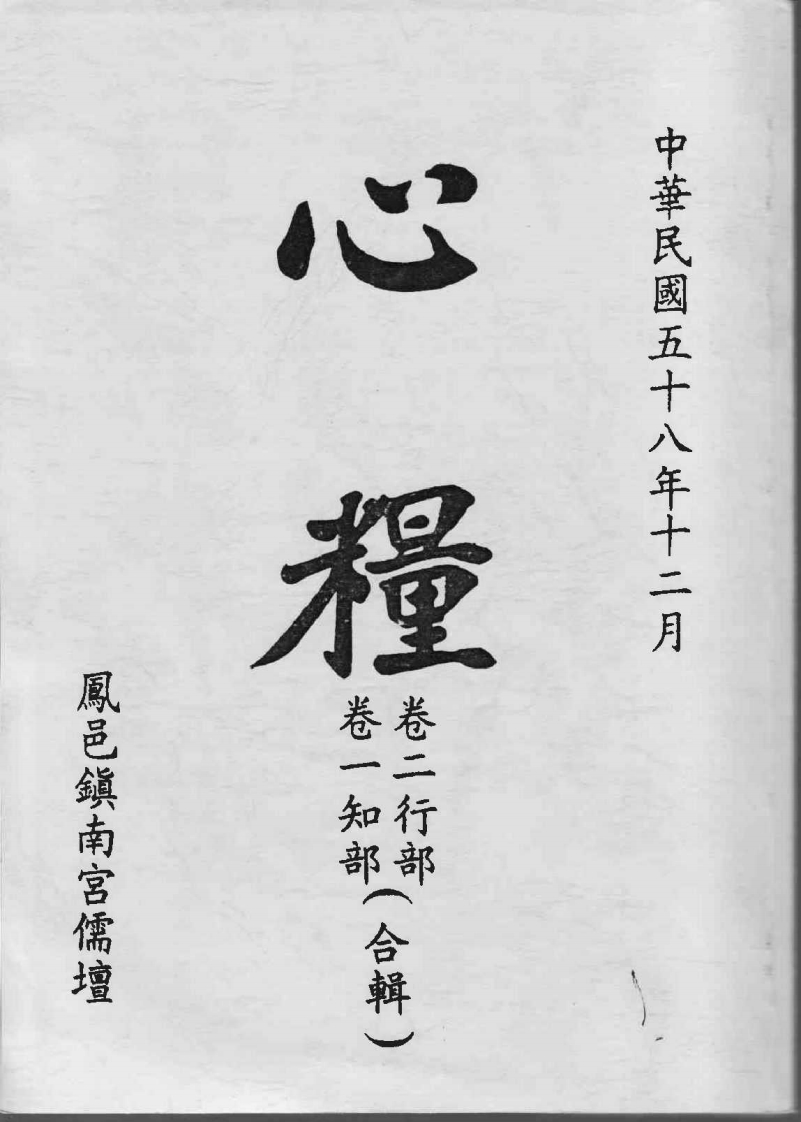 中華民國五十八年十二月
心糧
卷二行部
卷一知部
(合輯)
鳳邑鎮南宮儒壇